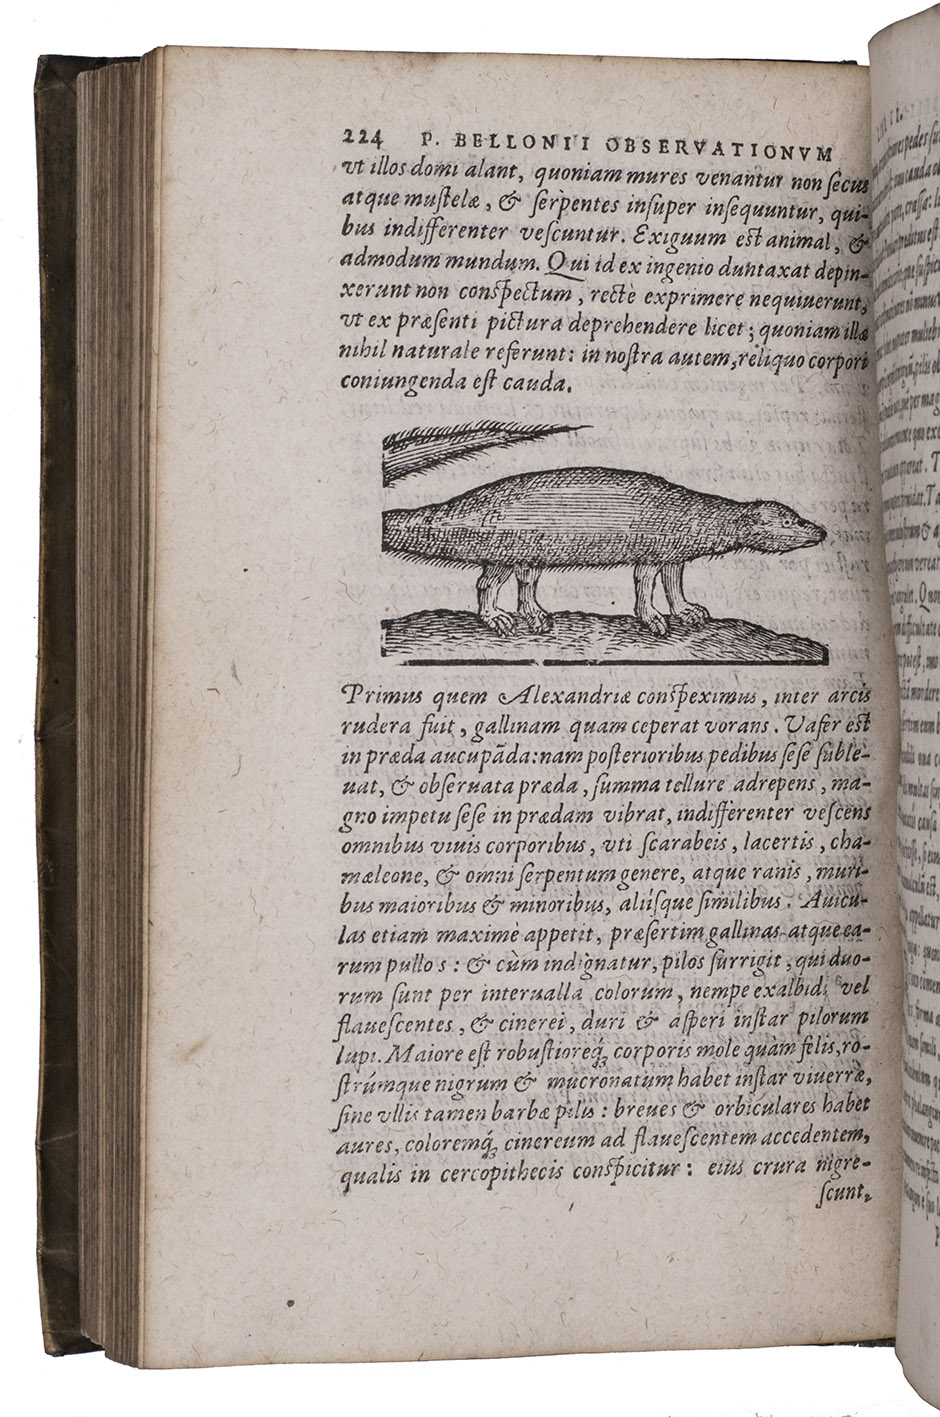 224 P. BELLONII OBSERVATIONVM
vt illos domi alant, quoniam mures venantur non secus
atque mustelæ, & serpentes insuper insequuntur, qui-
bus indifferenter vescuntur. Exiguum est animal, &
admodum mundum. Qui id ex ingenio duntaxat depin-
xerunt non conspectum, rectè exprimere nequiuerunt,
vt ex præsenti pictura deprehendere licet; quoniam illæ
nihil naturale referunt: in nostra autem, reliquo corpori
coniungenda est cauda.
Primus quem Alexandriæ conspeximus, inter arcis
rudera fuit, gallinam quam ceperat vorans. Vafer est
in præda aucupãda: nam posterioribus pedibus sese suble-
uat, & obseruata præda, summa tellure adrepens, ma-
gno impetu sese in prædam vibrat, indifferenter vescens
omnibus viuis corporibus, vti scarabeis, lacertis, cha-
mæleone, & omni serpentum genere, atque ranis, muri-
bus maioribus & minoribus, aliísque similibus. Auicu-
las etiam maximè appetit, præsertim gallinas atque ea-
rum pullos: & cùm indignatur, pilos surrigit, qui duo-
rum sunt per interualla colorum, nempe exalbidi vel
flauescentes, & cinerei, duri & asperi instar pilorum
lupi. Maiore est robustioreq́; corporis mole quàm felis, ro-
strúmque nigrum & mucronatum habet instar viuerræ,
sine vllis tamen barbæ pilis: breues & orbiculares habet
aures, coloremq́; cinereum ad flauescentem accedentem,
qualis in cercopithecis conspicitur: eius crura nigre-
scunt,